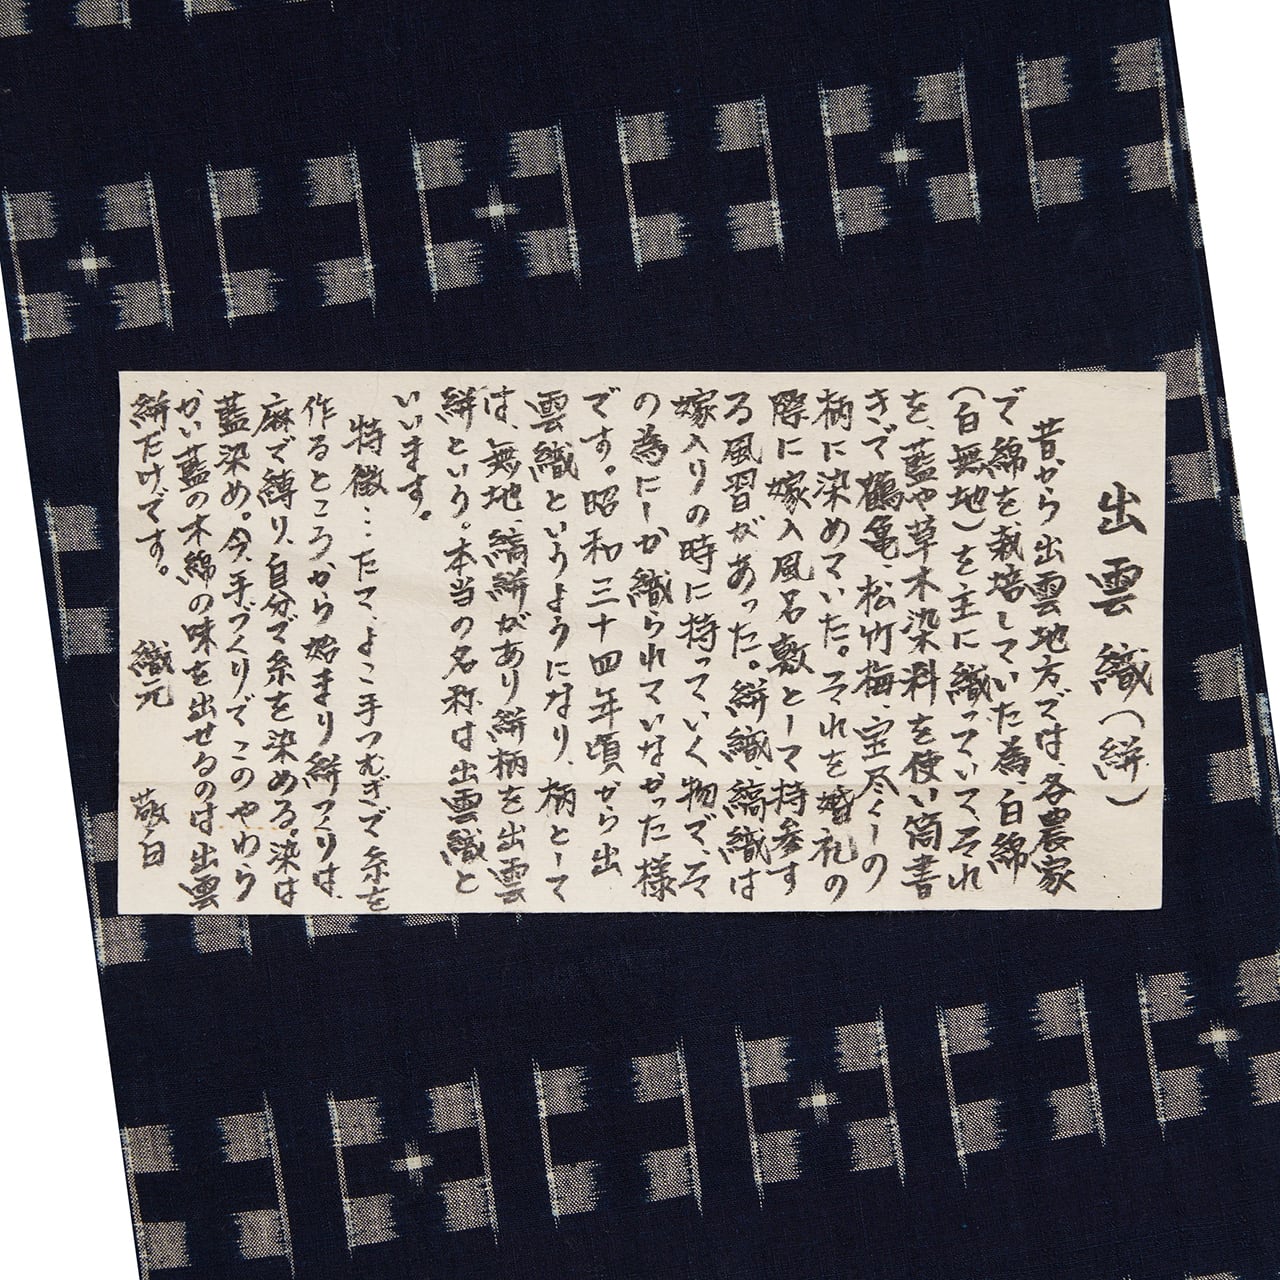 出雲織（絣）
昔から出雲地方では各農家
で綿を栽培していた為、白綿
（白無地）を主に織っていて、それ
を、藍や草木染料を使い筒書
きで鶴亀、松竹梅、宝尽くしの
柄に染めていた。それを婚礼の
際に嫁入風呂敷として持参す
る風習があった。絣織、縞織は
嫁入りの時に持っていく物で、そ
の為にしか織られていなかった様
です。昭和三十四年頃、から出
雲織というようになり、柄として
は、無地、縞絣があり絣柄を出雲
絣という。本当の名称は出雲織と
いいます。
特徴…たて、よこ手つむぎで糸を
作るところから始まり絣つくりは、
麻で縛り、自分で糸を染める。染は
藍染め。今、手づくりでこのやわら
かい藍の木綿の味を出せるのは出雲
絣だけです。
織元　敬白